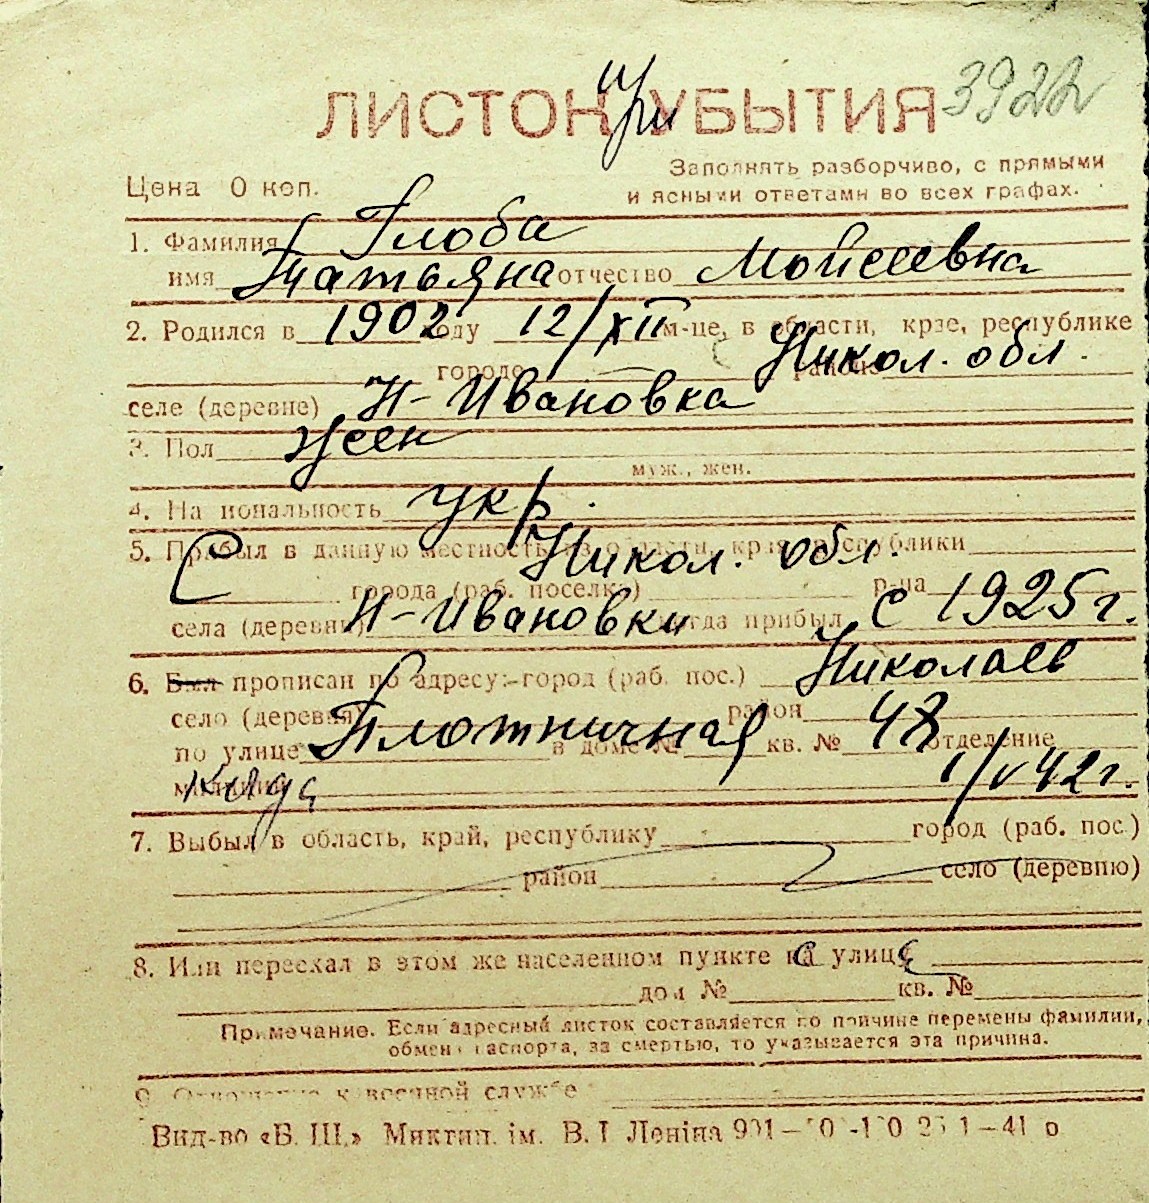 при 3922
ЛИСТОК УБЫТИЯ
Заполнять разборчиво, с прямыми
Цена 0 коп. и ясными ответами во всех графах.
1. Фамилия Глоба
имя Татьяна отчество Мойсеевна
2. Родился в 1902 году 12/XII м-це, в области, крае, республике
городе районе Никол. обл.
селе (деревне) Н-Ивановка
3. Пол жен
муж., жен.
4. Национальность укр.
5. Прибыл в данную местность из области, края, республики
Никол. обл.
С города (раб. поселка) р-на
села (деревни) Н-Ивановки когда прибыл с 1925 г.
6. Был прописан по адресу:-город (раб. пос.) Николаев
село (деревня) район
по улице Плотничная в доме № кв. № 48 отделение
милиции 1/V 42 г.
7. Выбыл в область, край, республику город (раб. пос.)
район село (деревню)
8. Или переехал в этом же населенном пункте на улицу
дом № кв. №
Примечание. Если адресный листок составляется по причине перемены фамилии,
обмена паспорта, за смертью, то указывается эта причина.
9. Отношение к военной службе
Вид-во «Б. Ш.» Миктип. ім. В. І Леніна